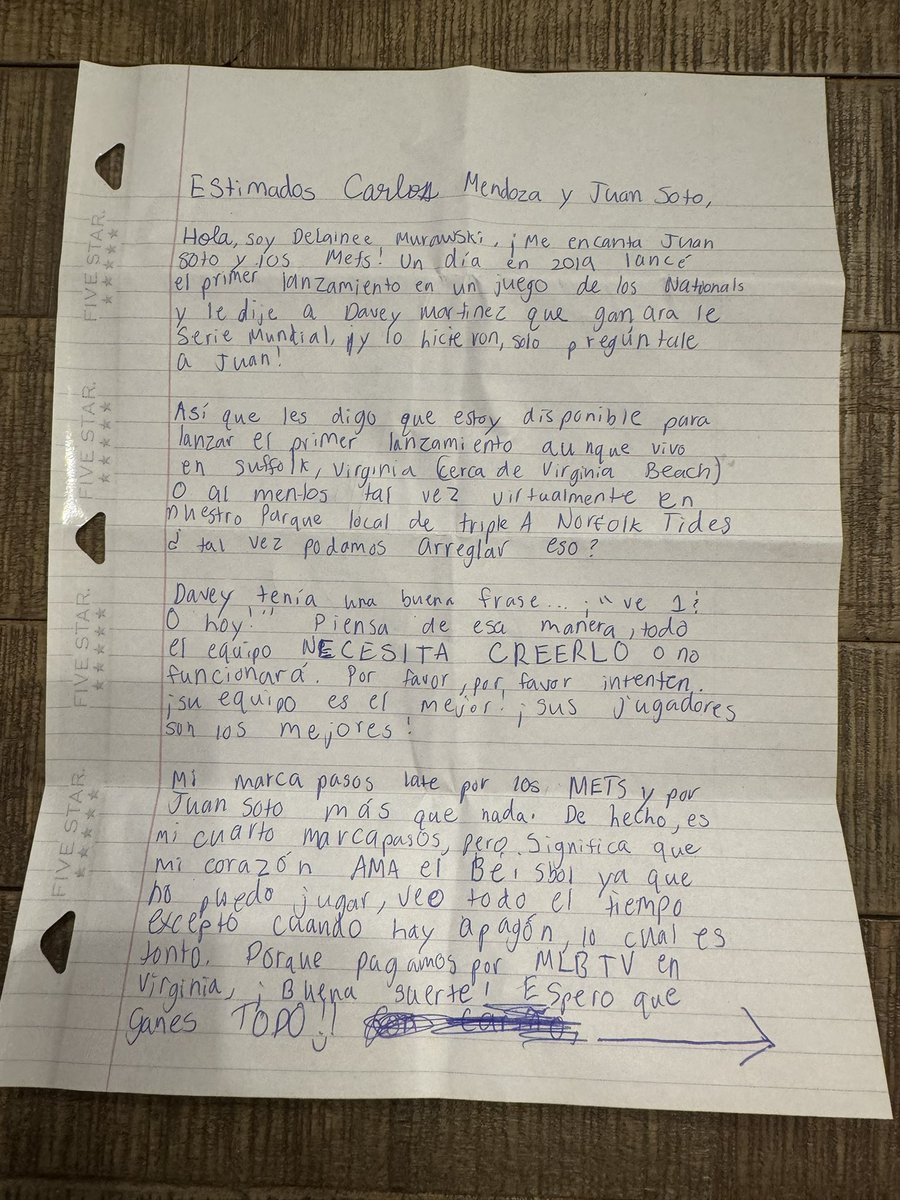 Estimados Carlos Mendoza y Juan Soto,
Hola, soy Delainee Murawski, ¡Me encanta Juan
Soto y los Mets! Un día en 2019 lancé
el primer lanzamiento en un juego de los Nationals
y le dije a Davey Martinez que ganara le
Serie Mundial, ¡y lo hicieron, solo pregúntale
a Juan!
Así que les digo que estoy disponible para
lanzar el primer lanzamiento aunque vivo
en Suffolk, Virginia (cerca de Virginia Beach)
O al menlos tal vez virtualmente en
nuestro Parque local de triple A Norfolk Tides
¿ tal vez podamos arreglar eso?
Davey tenía una buena frase... ¡"ve 1
O hoy!" Piensa de esa manera, todo
el equipo NECESITA CREERLO o no
funcionará. Por favor, por favor intenten.
¡su equipo es el mejor! ¡sus jugadores
son los mejores!
Mi marca pasos late por los METS y por
Juan Soto más que nada. De hecho, es
mi cuarto marcapasos, pero significa que
mi corazón AMA el Béisbol ya que
no puedo jugar, veo todo el tiempo
excepto cuando hay apagón, lo cual es
tonto. Porque pagamos por MLB TV en
Virginia, ¡Buena suerte! Espero que
ganes TODO!!
FIVE STAR.
FIVE STAR.
FIVE STAR.
FIVE STAR.